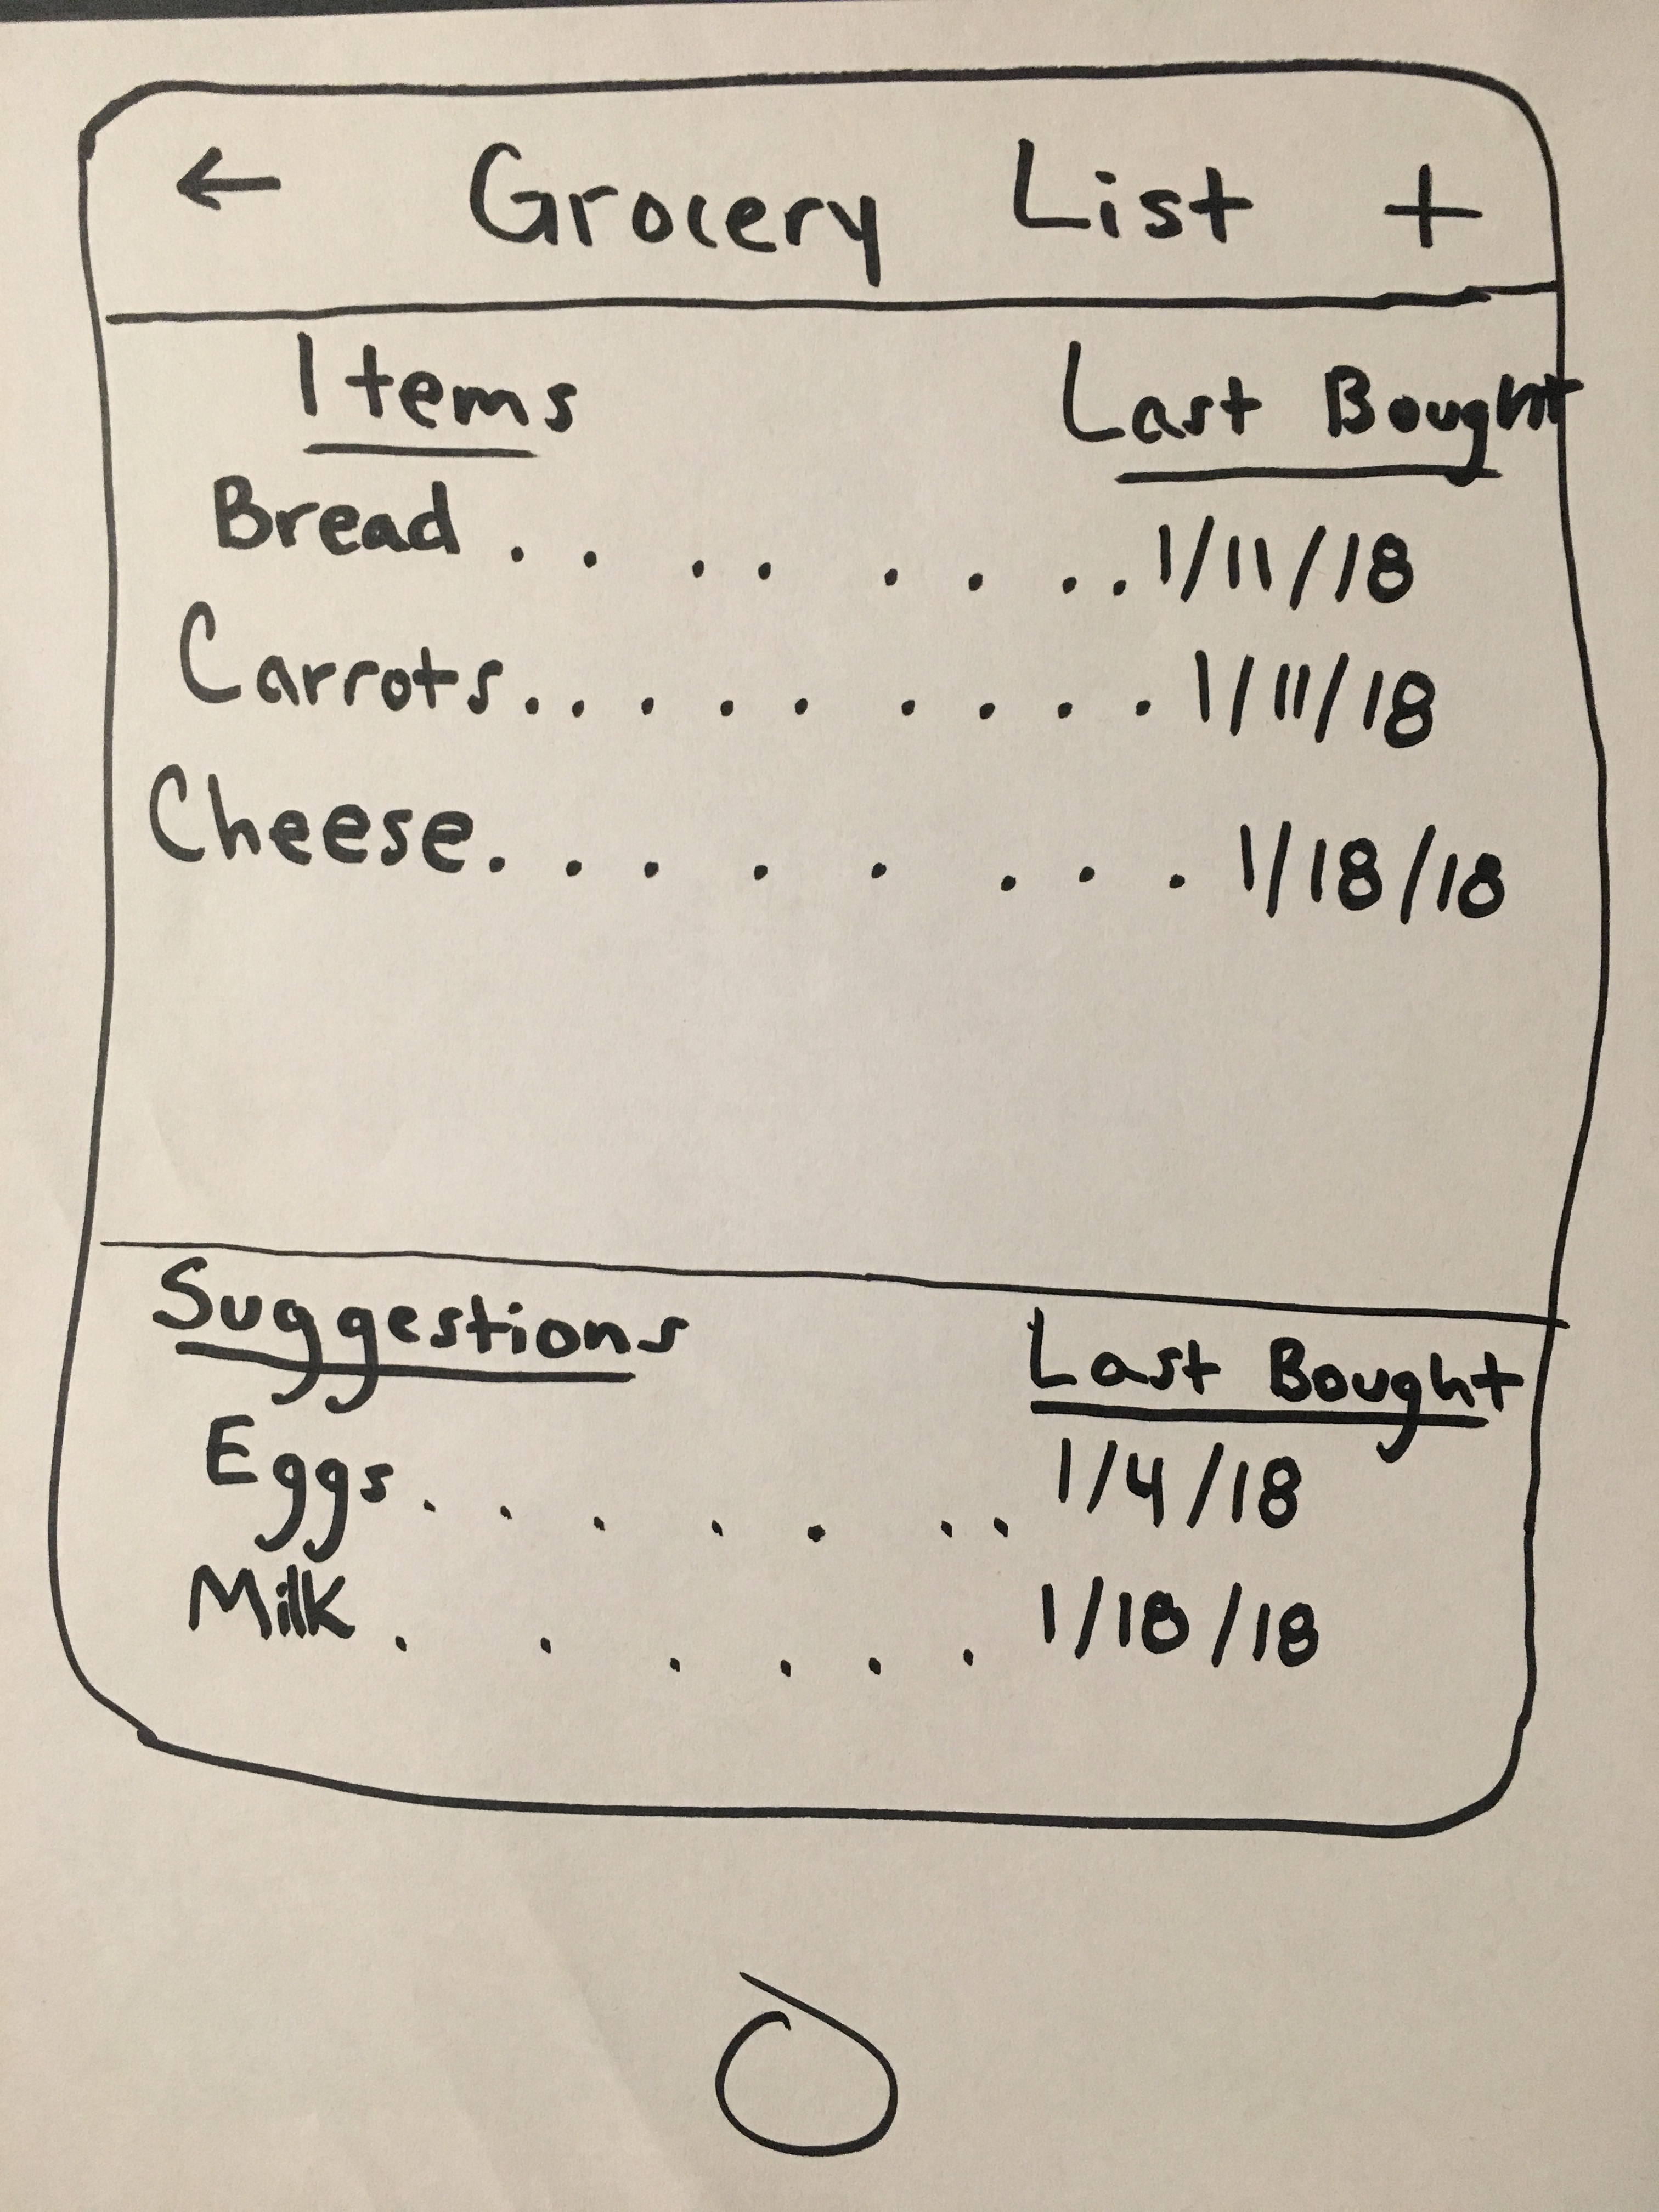 ← Grocery List +
Items Last Bought
Bread . . . . . . . . 1/11/18
Carrots . . . . . . . . . 1/11/18
Cheese . . . . . . . . 1/18/18
Suggestions Last Bought
Eggs . . . . . . . 1/4/18
Milk . . . . . . 1/18/18